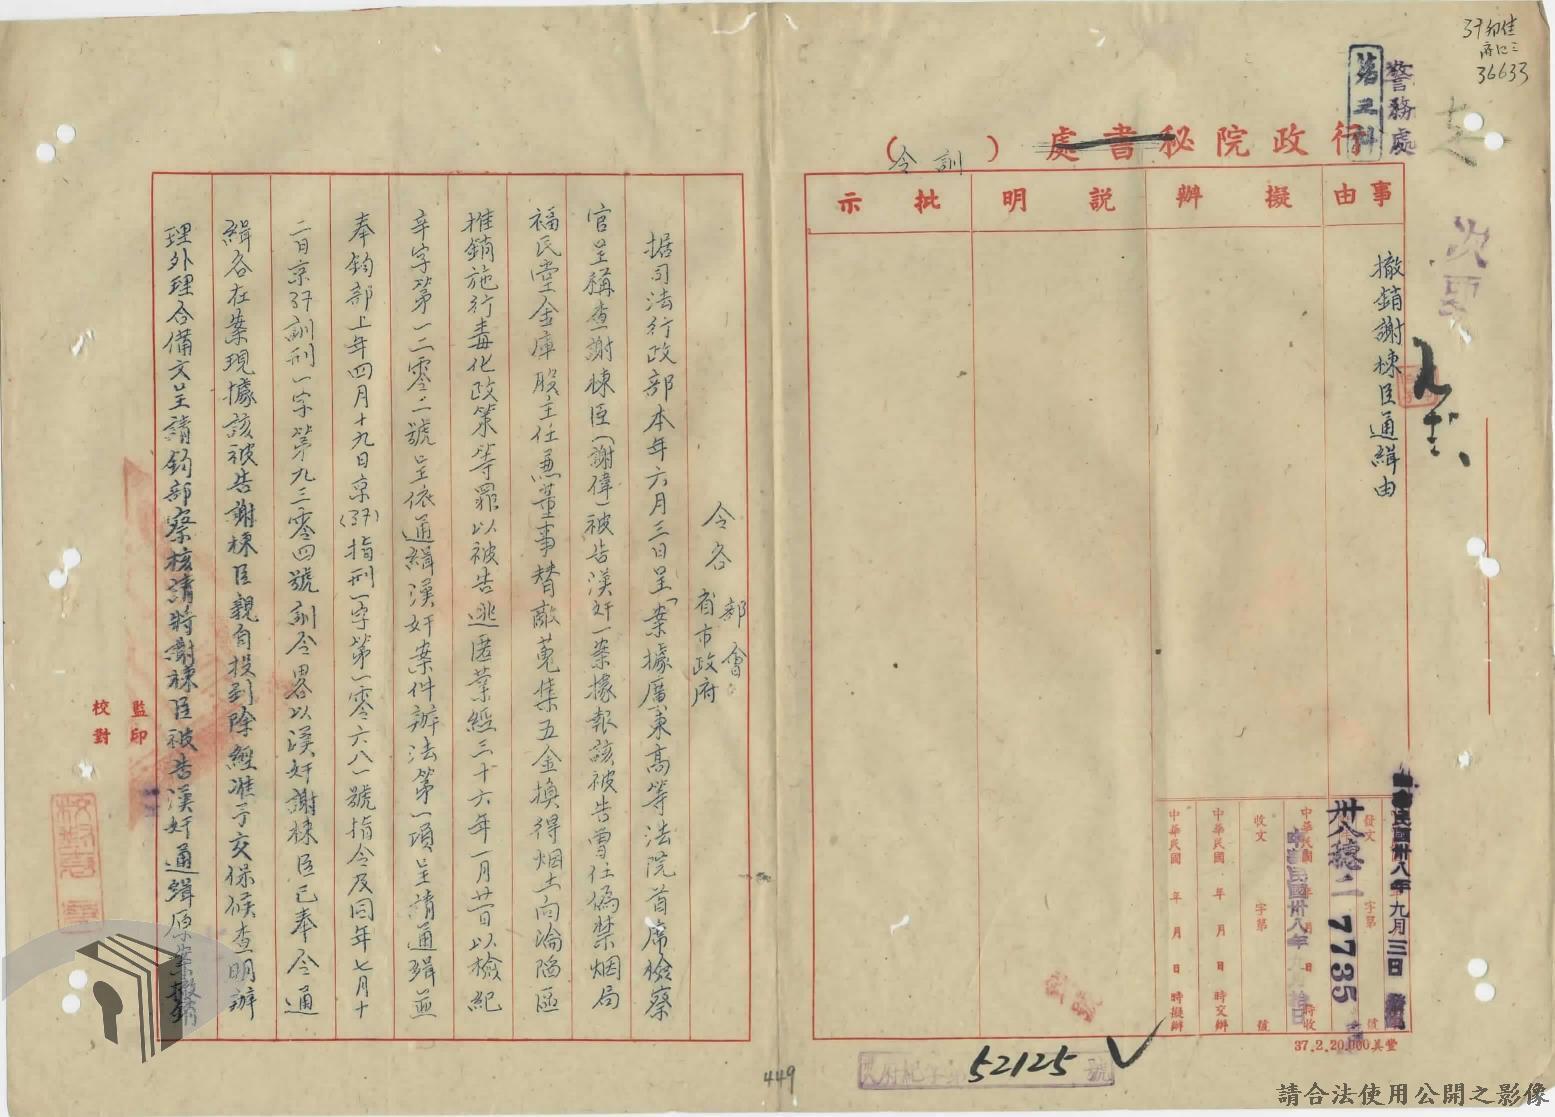 37卯佳
府紀三
36633
警務處
第三科
行政院秘書處
(訓令)
事由
擬辦
說明
批示
撤銷謝棟臣通緝由
發文
字第
號
中華民國卅八年九月三日
卅八穗二
7735
中華民國 年 月 日 時收
收文 字第 號
中華民國 年 月 日 時交辦
中華民國 年 月 日 時擬辦
37.2.20,000美豐
令各部會
省市政府
據司法行政部本年六月三日呈「案據廣東高等法院首席檢察
官呈稱查謝棟臣(謝偉)被告漢奸一案據報該被告曾任偽禁烟局
福民堂金庫股主任兼董事替敵蒐集五金換得烟土向淪陷區
推銷施行毒化政策等罪以被告逃匿業經三十六年一月廿日以檢紀
辛字第一二零二號呈依通緝漢奸案件辦法第一項呈請通緝並
奉鈞部上年四月十九日京(37)指刑一字第一零六八一號指令及同年七月十
二日京37訓刑一字第九三零四號訓令畧以漢奸謝棟臣已奉令通
緝各在案現據該被告謝棟臣親自投到除經准予交保候查明辦
理外理合備文呈請鈞部察核請將謝棟臣被告漢奸通緝原案撤銷
監印
校對
449
府紀字第52125號
請合法使用公開之影像